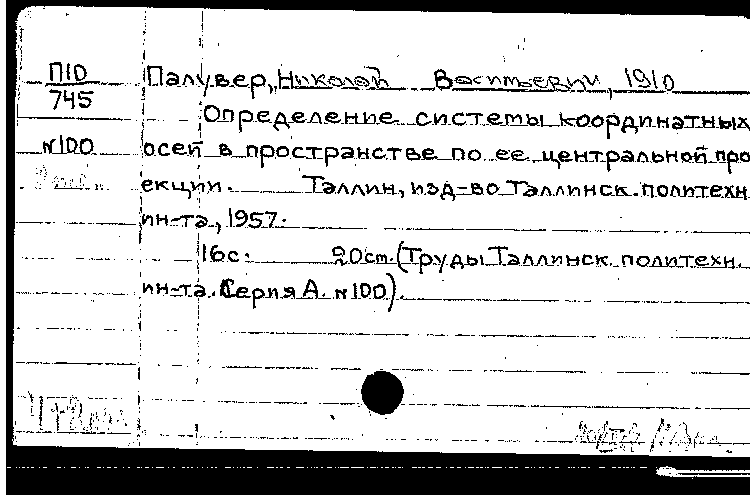 П10
745
Палувер, Николай Васильевич, 1910
Определение системы координатных
№100
осей в пространстве по ее центральной про
екции. Таллин, изд-во Таллинск. политехн
ин-та, 1957.
16с. 20см. (Труды Таллинск. политехн.
ин-та. Серия А. №100).